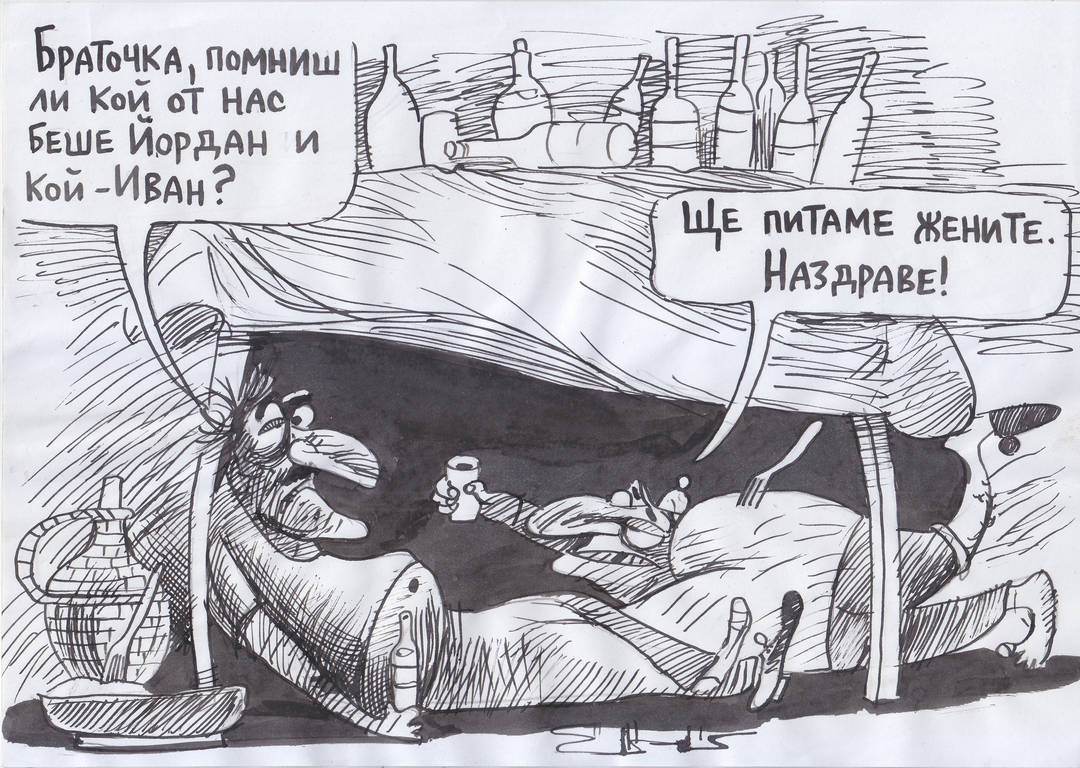 Браточка, помниш
ли кой от нас
беше Йордан и
кой - Иван?
Ще питаме жените.
Наздраве!